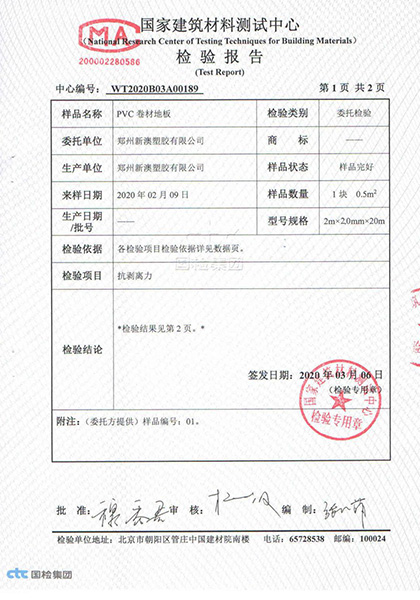 MA
200002280586
国家建筑材料测试中心
(National Research Center of Testing Techniques for Building Materials)
检验报告
(Test Report)
中心编号: WT2020B03A00189 第 1 页 共 2 页
样品名称 PVC 卷材地板 检验类别 委托检验
委托单位 郑州新澳塑胶有限公司 商 标 ——
生产单位 郑州新澳塑胶有限公司 样品状态 样品完好
来样日期 2020 年 02 月 09 日 样品数量 1 块 0.5m²
生产日期/批号 —— 型号规格 2m×2.0mm×20m
检验依据 各检验项目检验依据详见数据页。
国检集团
检验项目 抗剥离力
检验结论 *检验结果见第 2 页。*
签发日期: 2020 年 03 月 06 日
(检验专用章)
国家建筑材料测试中心
检验专用章
附注: (委托方提供) 样品编号: 01。
批 准: 审 核: 编 制:
检验单位地址: 北京市朝阳区管庄中国建材院南楼 电话: 65728538 邮编: 100024
ctc 国检集团